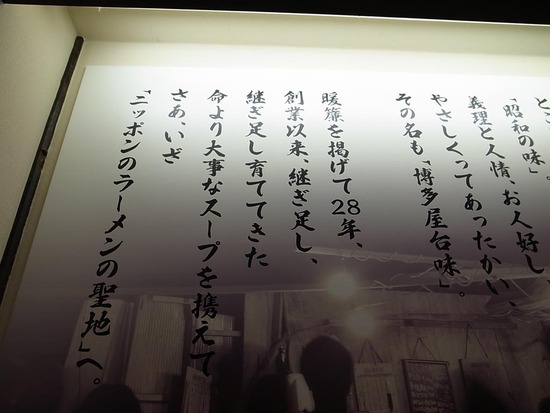 「昭和の味」。
義理と人情、お人好し、
やさしくってあったかい、
その名も「博多屋台味」。
暖簾を掲げて28年、
創業以来、継ぎ足し、
継ぎ足し育ててきた
命より大事なスープを携えて
さあ、いざ
「ニッポンのラーメンの聖地」へ。